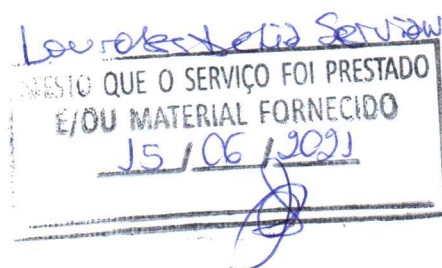 Lourdes Delia Servian
ATESTO QUE O SERVIÇO FOI PRESTADO
E/OU MATERIAL FORNECIDO
15 / 06 / 2021